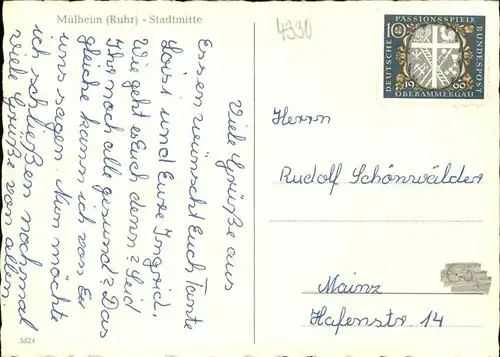 Mülheim (Ruhr) - Stadtmitte
4330
Viele Grüße aus
Essen wünscht Euch Tante
Lousi und Eure Ingrid.
Wie geht es Euch denn? Seid
Ihr noch alle gesund? Das
gleiche kann ich von
uns sagen. Nun möchte
ich schließen nochmal
viele Grüße von allen.
DEUTSCHE BUNDESPOST
PASSIONSSPIELE
OBERAMMERGAU
10
1960
Herrn
Rudolf Schönwälder
Mainz
Hafenstr 14
5824